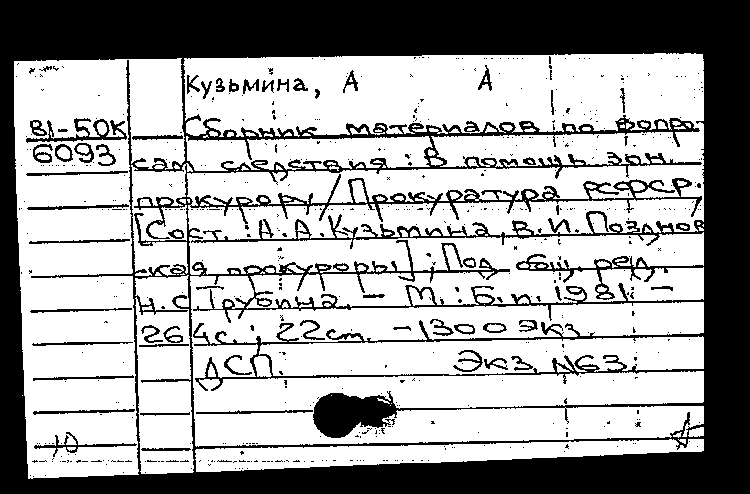 Кузьмина, А А
81-50К Сборник материалов по вопро-
6093 сам следствия: В помощь зон.
прокурору/Прокуратура РСФСР;
[Сост.: А.А.Кузьмина, В.И. Позднов
ская, прокуроры]; Под общ. ред.
Н.С.Трубина. — М.: Б.и. 1981 —
264с.; 22см. -1300экз.
ДСП. Экз. №63.
10